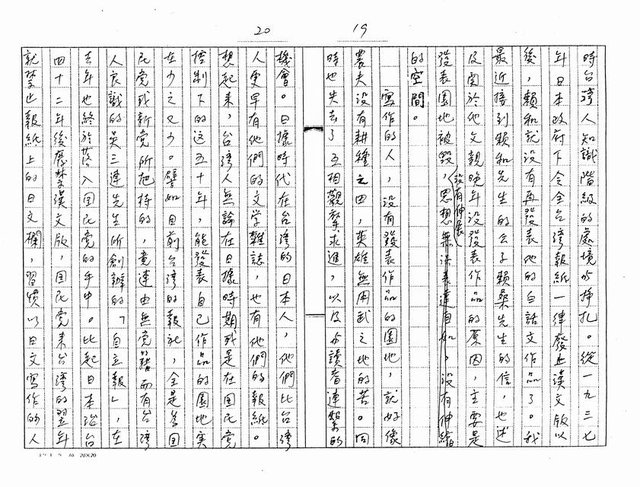 19
時台灣人知識階級的處境與掙扎。從一九三七
年日本政府下令全台灣報紙一律廢止漢文版以
後，賴和就沒有再發表他的白話文作品了。我
最近接到賴和先生的公子賴燊先生的信，也述
及關於他父親晚年沒發表作品的原因，主要是
發表園地被毀，思想無法表達自如，沒有伸縮
沒有伸展
的空間。
寫作的人，沒有發表作品的園地，就好像
農夫沒有耕種之田，英雄無用武之地的苦。同
時也失去了互相觀摩求進，以及与讀者連繫的
20
機會。日據時代在台灣的日本人，他們比台灣
人更早有他們的文学雜誌，也有他們的報紙。
想起來，台灣人無論在日據時期或是在国民党
控制下的這五十年，能發表自己作品的園地实
在少之又少。譬如目前台灣的報紙，全是為国
民党或新党所把持的，竟連由無党籍而有台灣
人良識的吳三連先生所創辦的「自立報」，在
去年也終於落入国民党的手中。比起日本治台
四十二年後廢禁漢文版，国民党來台灣的翌年
就禁止報紙上的日文欄，習慣以日文寫作的人